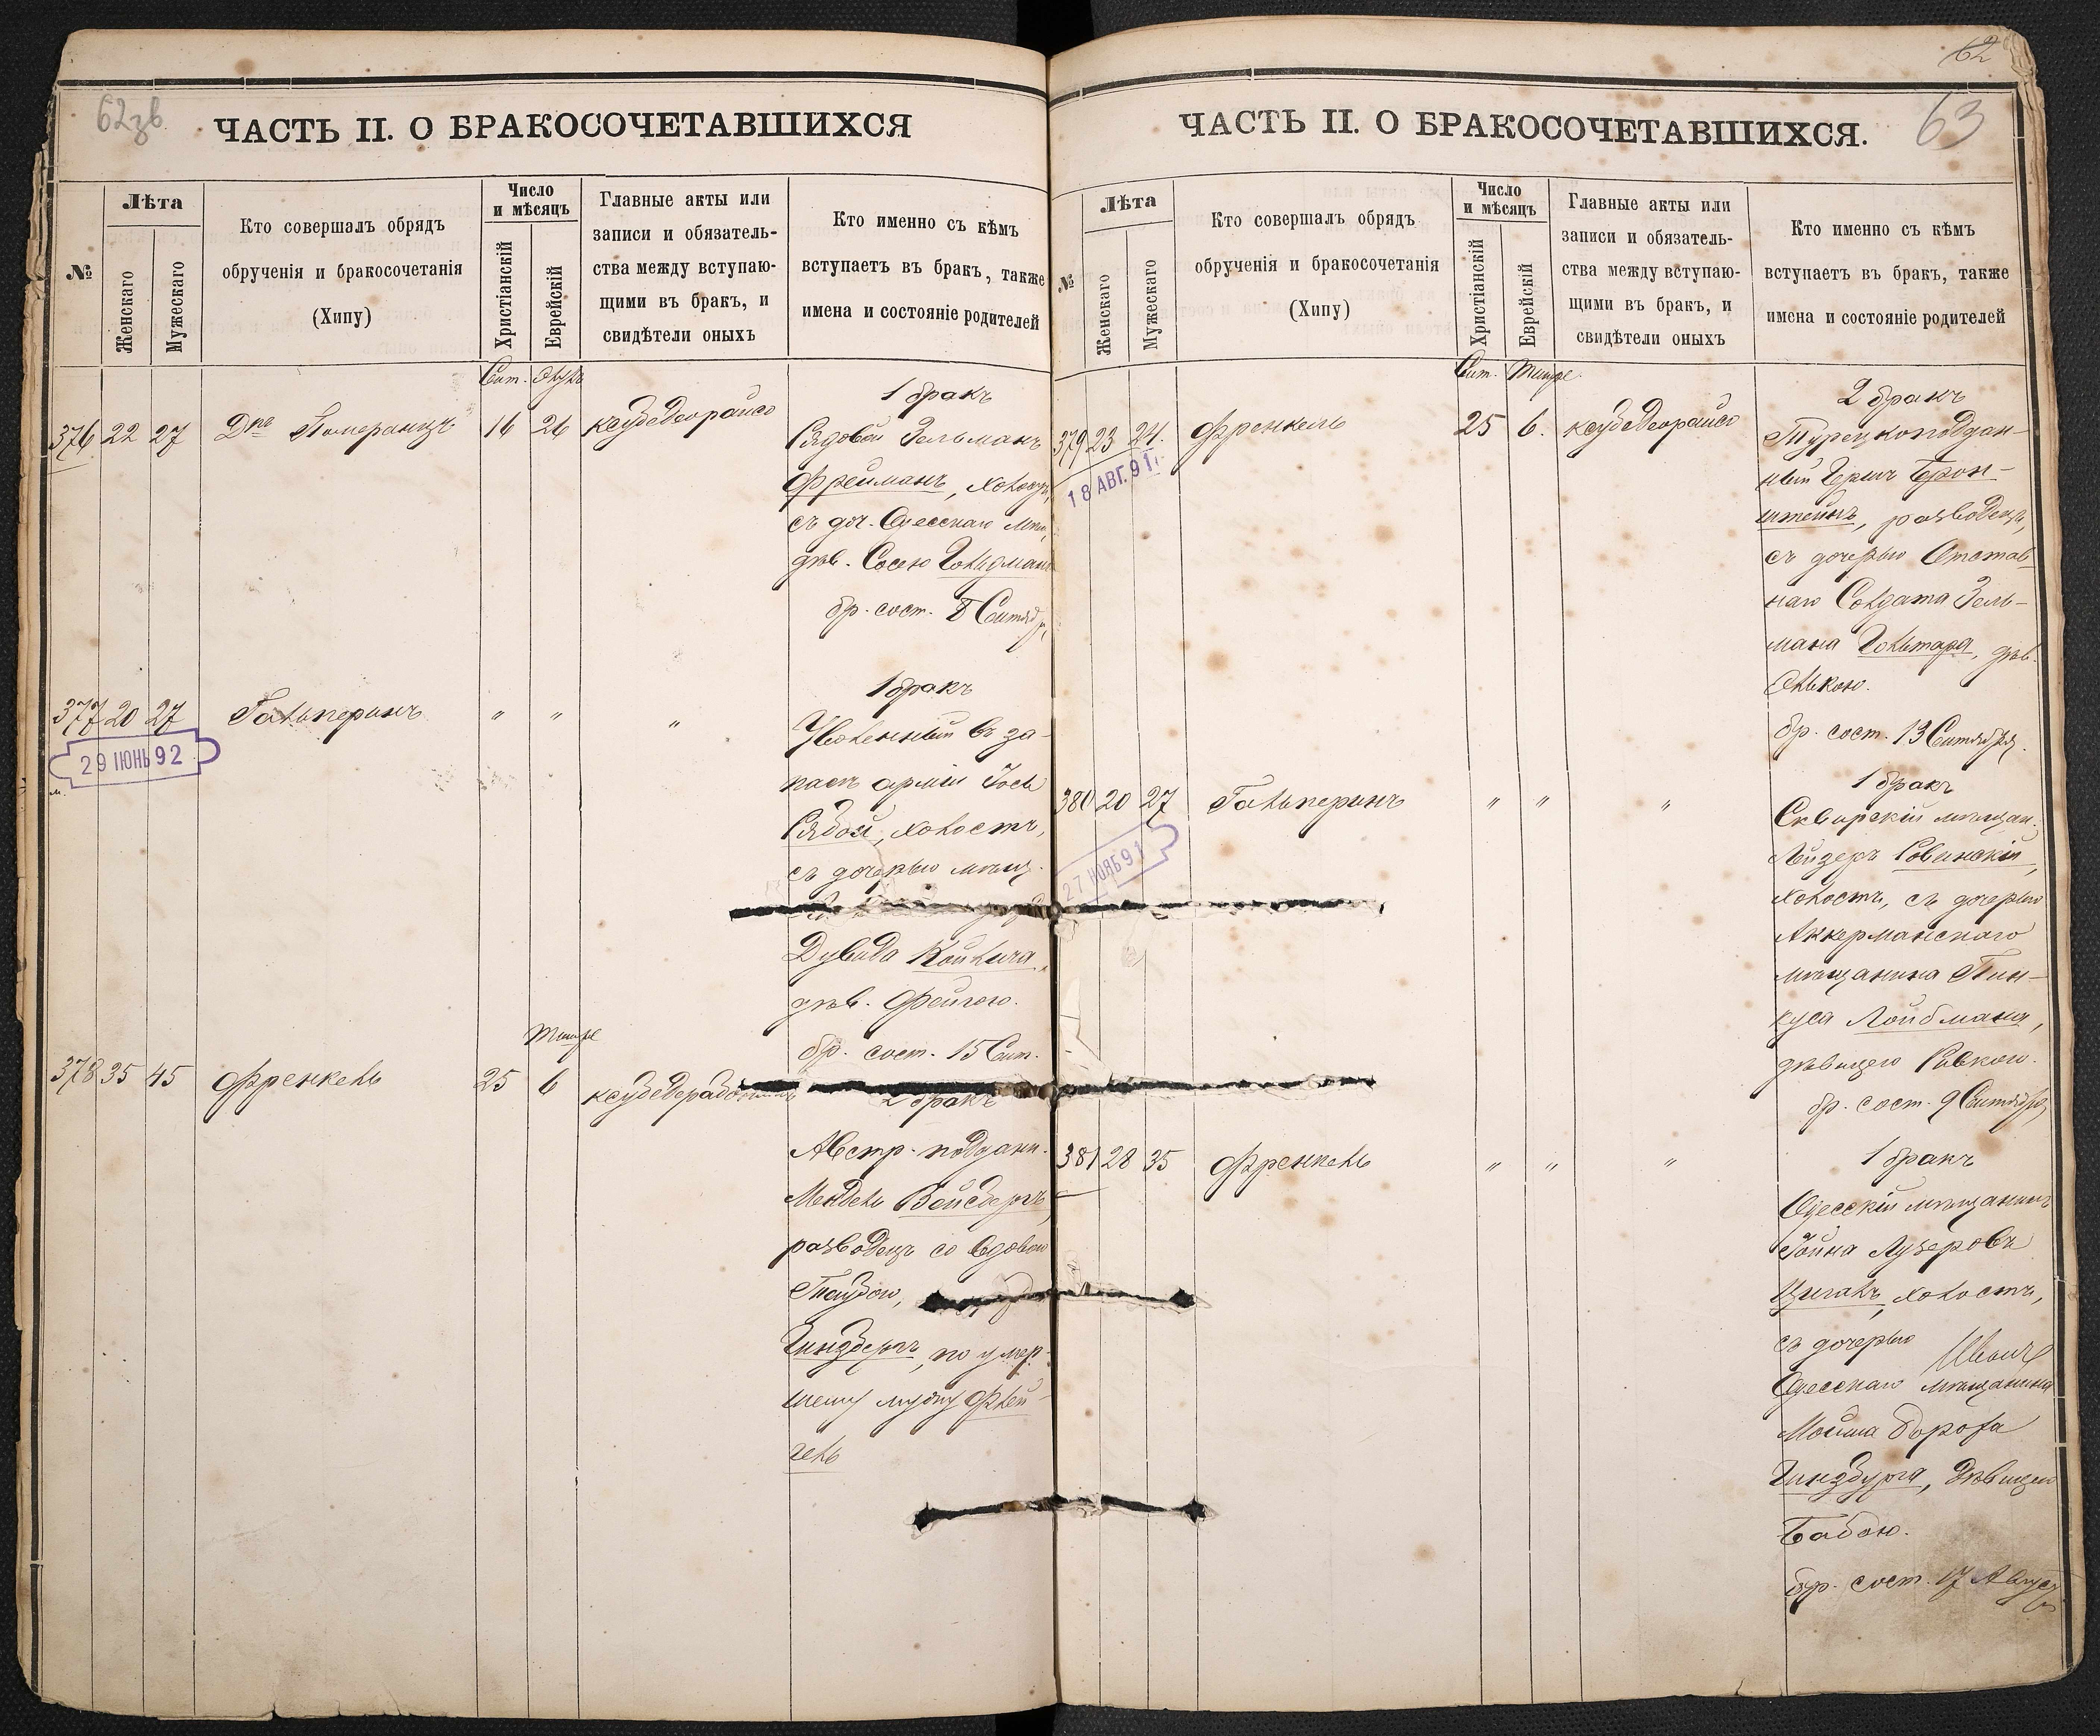 62зв
ЧАСТЬ II. О БРАКОСОЧЕТАВШИХСЯ
№
Лѣта
Женскаго
Мужескаго
Кто совершалъ обрядъ
обрученія и бракосочетанія
(Хипу)
Число
и мѣсяцъ
Христіанскій
Еврейскій
Главные акты или
записи и обязатель-
ства между вступаю-
щими въ бракъ, и
свидѣтели оныхъ
Кто именно съ кѣмъ
вступаетъ въ бракъ, также
имена и состояніе родителей
Сит.
376 22 27
Померанцъ
16 26
ксубедеорайсо
1 бракъ
Рядовой Зельманъ
Фрейманъ, холост,
съ доч. Одесскаго мѣщ,
дѣв. Сосею Гольдман
бр. сост. 8 Сентяб.
377 20 27
Гальперинъ
" "
"
29 ІЮНЬ 92
1 бракъ
Уволенный въ за-
пасъ арміи Іось
Рябой, холостъ,
съ дочерью мѣщ.
Дувида
дѣв. Фейгою.
бр. сост. 15 Сент.
Тишре
378 35 45
Френкель
25 6
2 бракъ
Австр. поддан.
Мендель Вейсбергъ,
разводецъ со вдовою
Таубою,
Гинзбергъ, по умер-
шему мужу Флей-
гель
62
63
ЧАСТЬ II. О БРАКОСОЧЕТАВШИХСЯ.
№
Лѣта
Женскаго
Мужескаго
Кто совершалъ обрядъ
обрученія и бракосочетанія
(Хипу)
Число
и мѣсяцъ
Христіанскій
Еврейскій
Главные акты или
записи и обязатель-
ства между вступаю-
щими въ бракъ, и
свидѣтели оныхъ
Кто именно съ кѣмъ
вступаетъ въ бракъ, также
имена и состояніе родителей
Сит. Тишре
379 23 24.
Френкель
25 6.
ксубедеорайсо
18 АВГ. 91
2 бракъ
Турецкоподдан-
ный Герш Брон-
штейнъ, разводецъ,
съ дочерью Отстав-
наго Солдата Зель-
мана Гольтара, дѣв.
Энькою.
бр. сост. 13 Сентября.
380 20 27
Гальперинъ
" "
"
27 НОЯБ 91
1 бракъ
Сквирскій мѣщан.
Лейзеръ Ровинскій,
холостъ, съ дочерью
Аккерманскаго
мѣщанина Пин-
куса Лойбмана,
дѣвицею Ривкою.
бр. сост. 9 Сентября
381 28 35
Френкель
" "
"
1 бракъ
Одесскій мѣщанинъ
Іойна Лузеровъ
Цигалъ, холостъ,
съ дочерью
Одесскаго мѣщанина
Мойша Бороха
Гинзбурга, дѣвицею
Бабою.
бр. сост. 17 Август